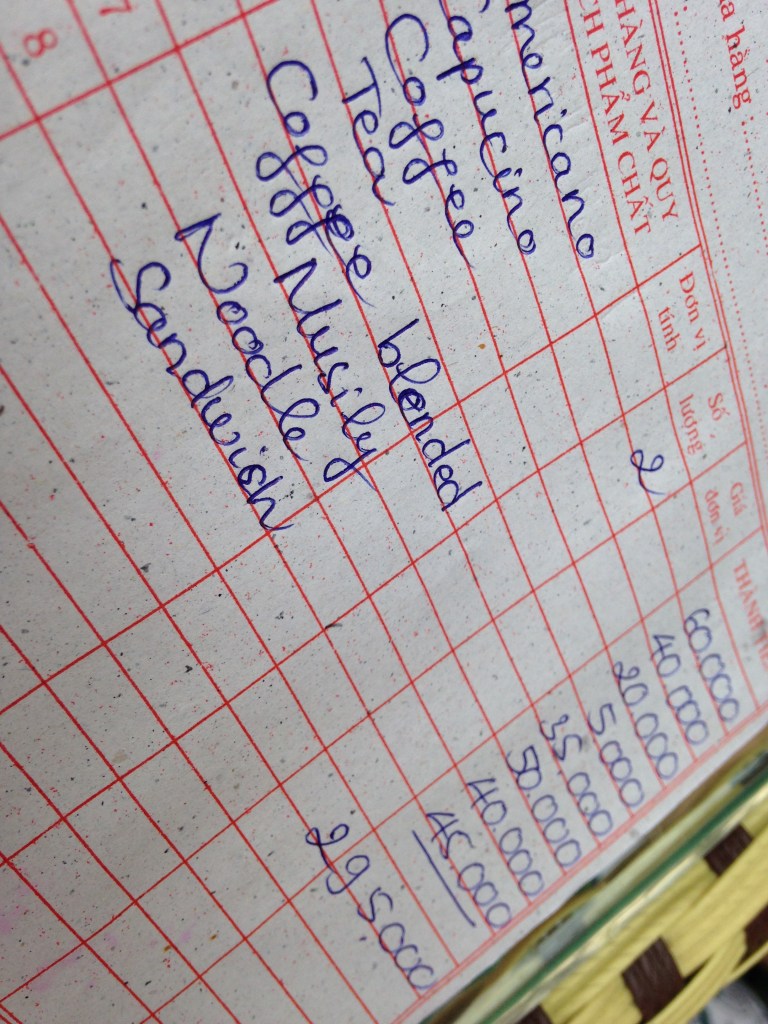 a hàng :
HÀNG VÀ QUY
CH PHẨM CHẤT
Đơn vị
tính
Số
lượng
Giá
đơn vị
THÀNH TI
mericano 2 60.000
apucino 40.000
Coffee 20.000
Tea 5000
Coffee blended 35.000
Musily 50.000
Noodle 40.000
Sandwish 45.000
7
8
295000